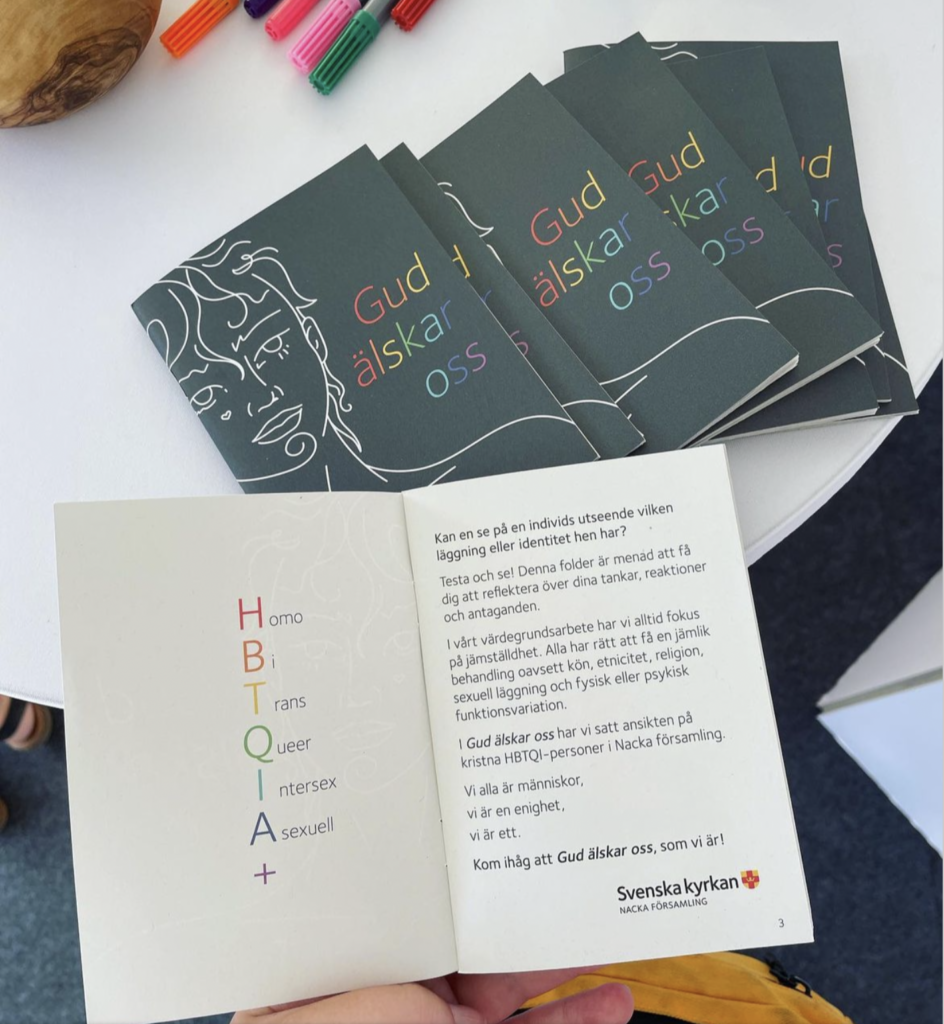 Gud
älskar
oss
d
s
Gud
älskar
oss
Gud
skar
oss
d
ud
ar
s
Homo
Bi
Trans
Queer
Intersex
Asexuell
+
Kan en se på en individs utseende vilken
läggning eller identitet hen har?
Testa och se! Denna folder är menad att få
dig att reflektera över dina tankar, reaktioner
och antaganden.
I vårt värdegrundsarbete har vi alltid fokus
på jämställdhet. Alla har rätt att få en jämlik
behandling oavsett kön, etnicitet, religion,
sexuell läggning och fysisk eller psykisk
funktionsvariation.
I Gud älskar oss har vi satt ansikten på
kristna HBTQI-personer i Nacka församling.
Vi alla är människor,
vi är en enighet,
vi är ett.
Kom ihåg att Gud älskar oss, som vi är!
Svenska kyrkan
NACKA FÖRSAMLING
3